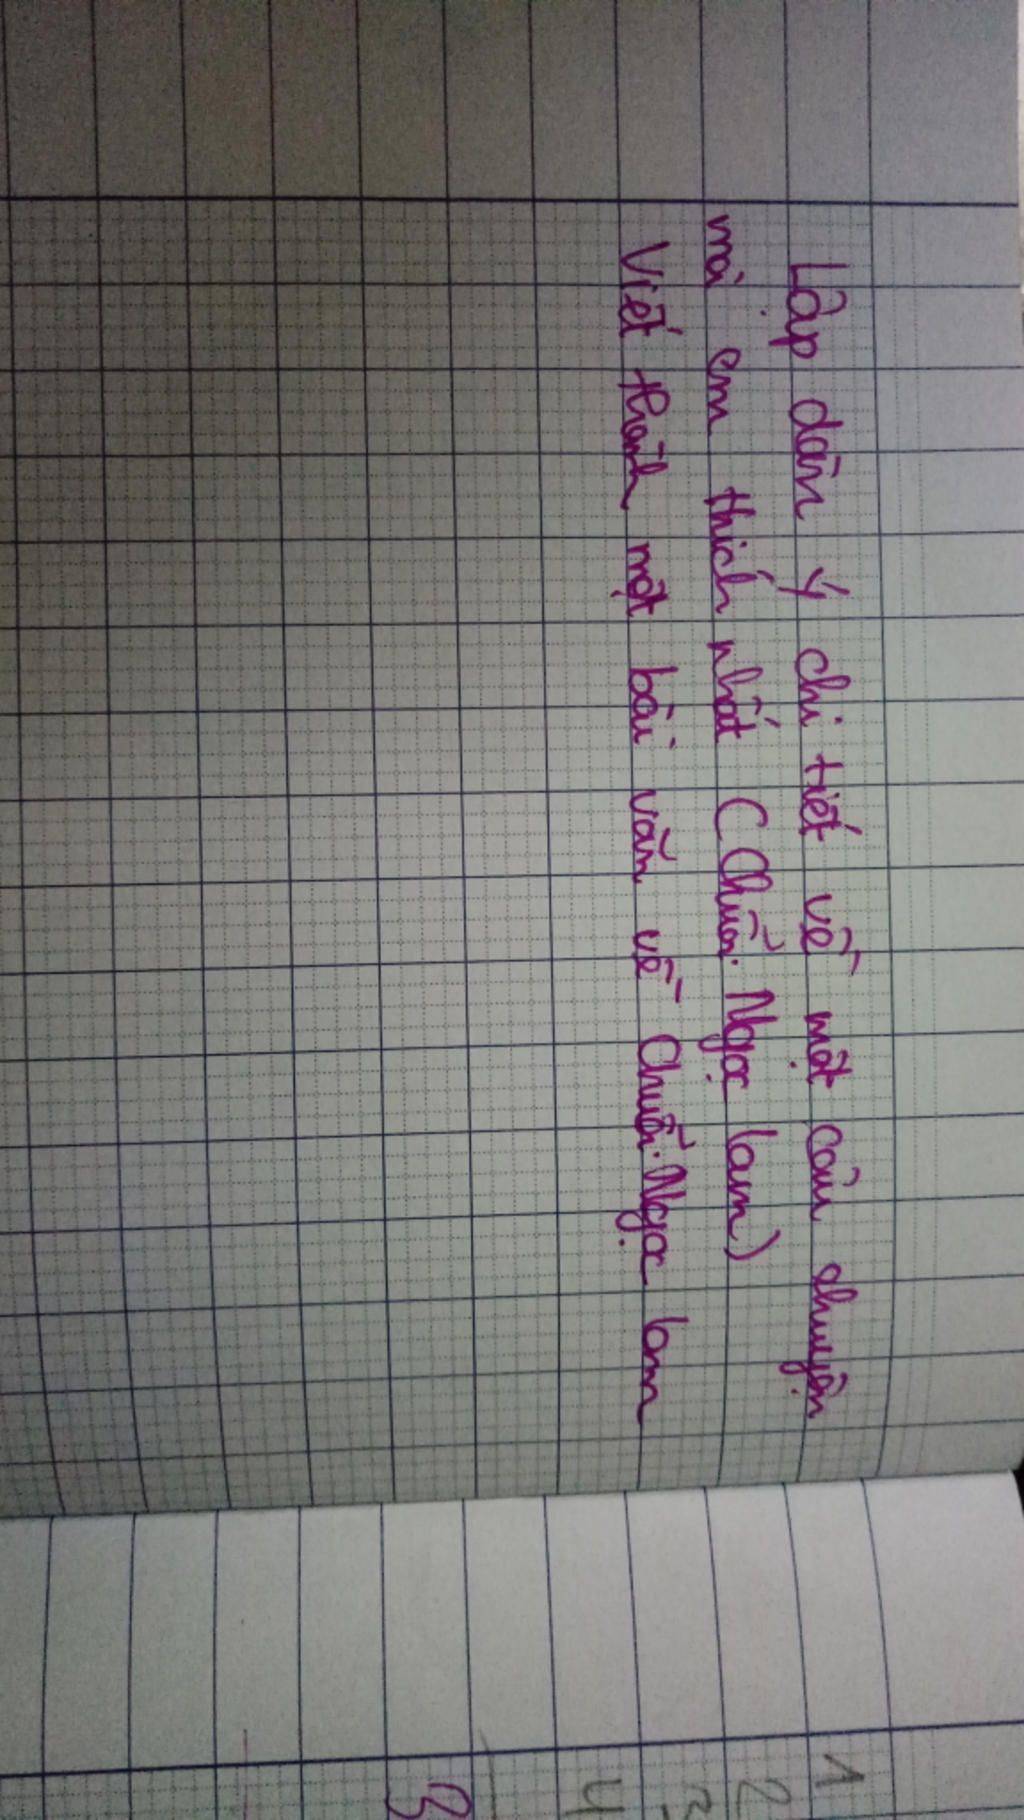 Lập dàn ý chi tiết về một câu chuyện
mà em thích nhất (Chuỗi Ngọc lam)
Viết thành một bài văn về Chuỗi Ngọc lam
1
2
3
4
3